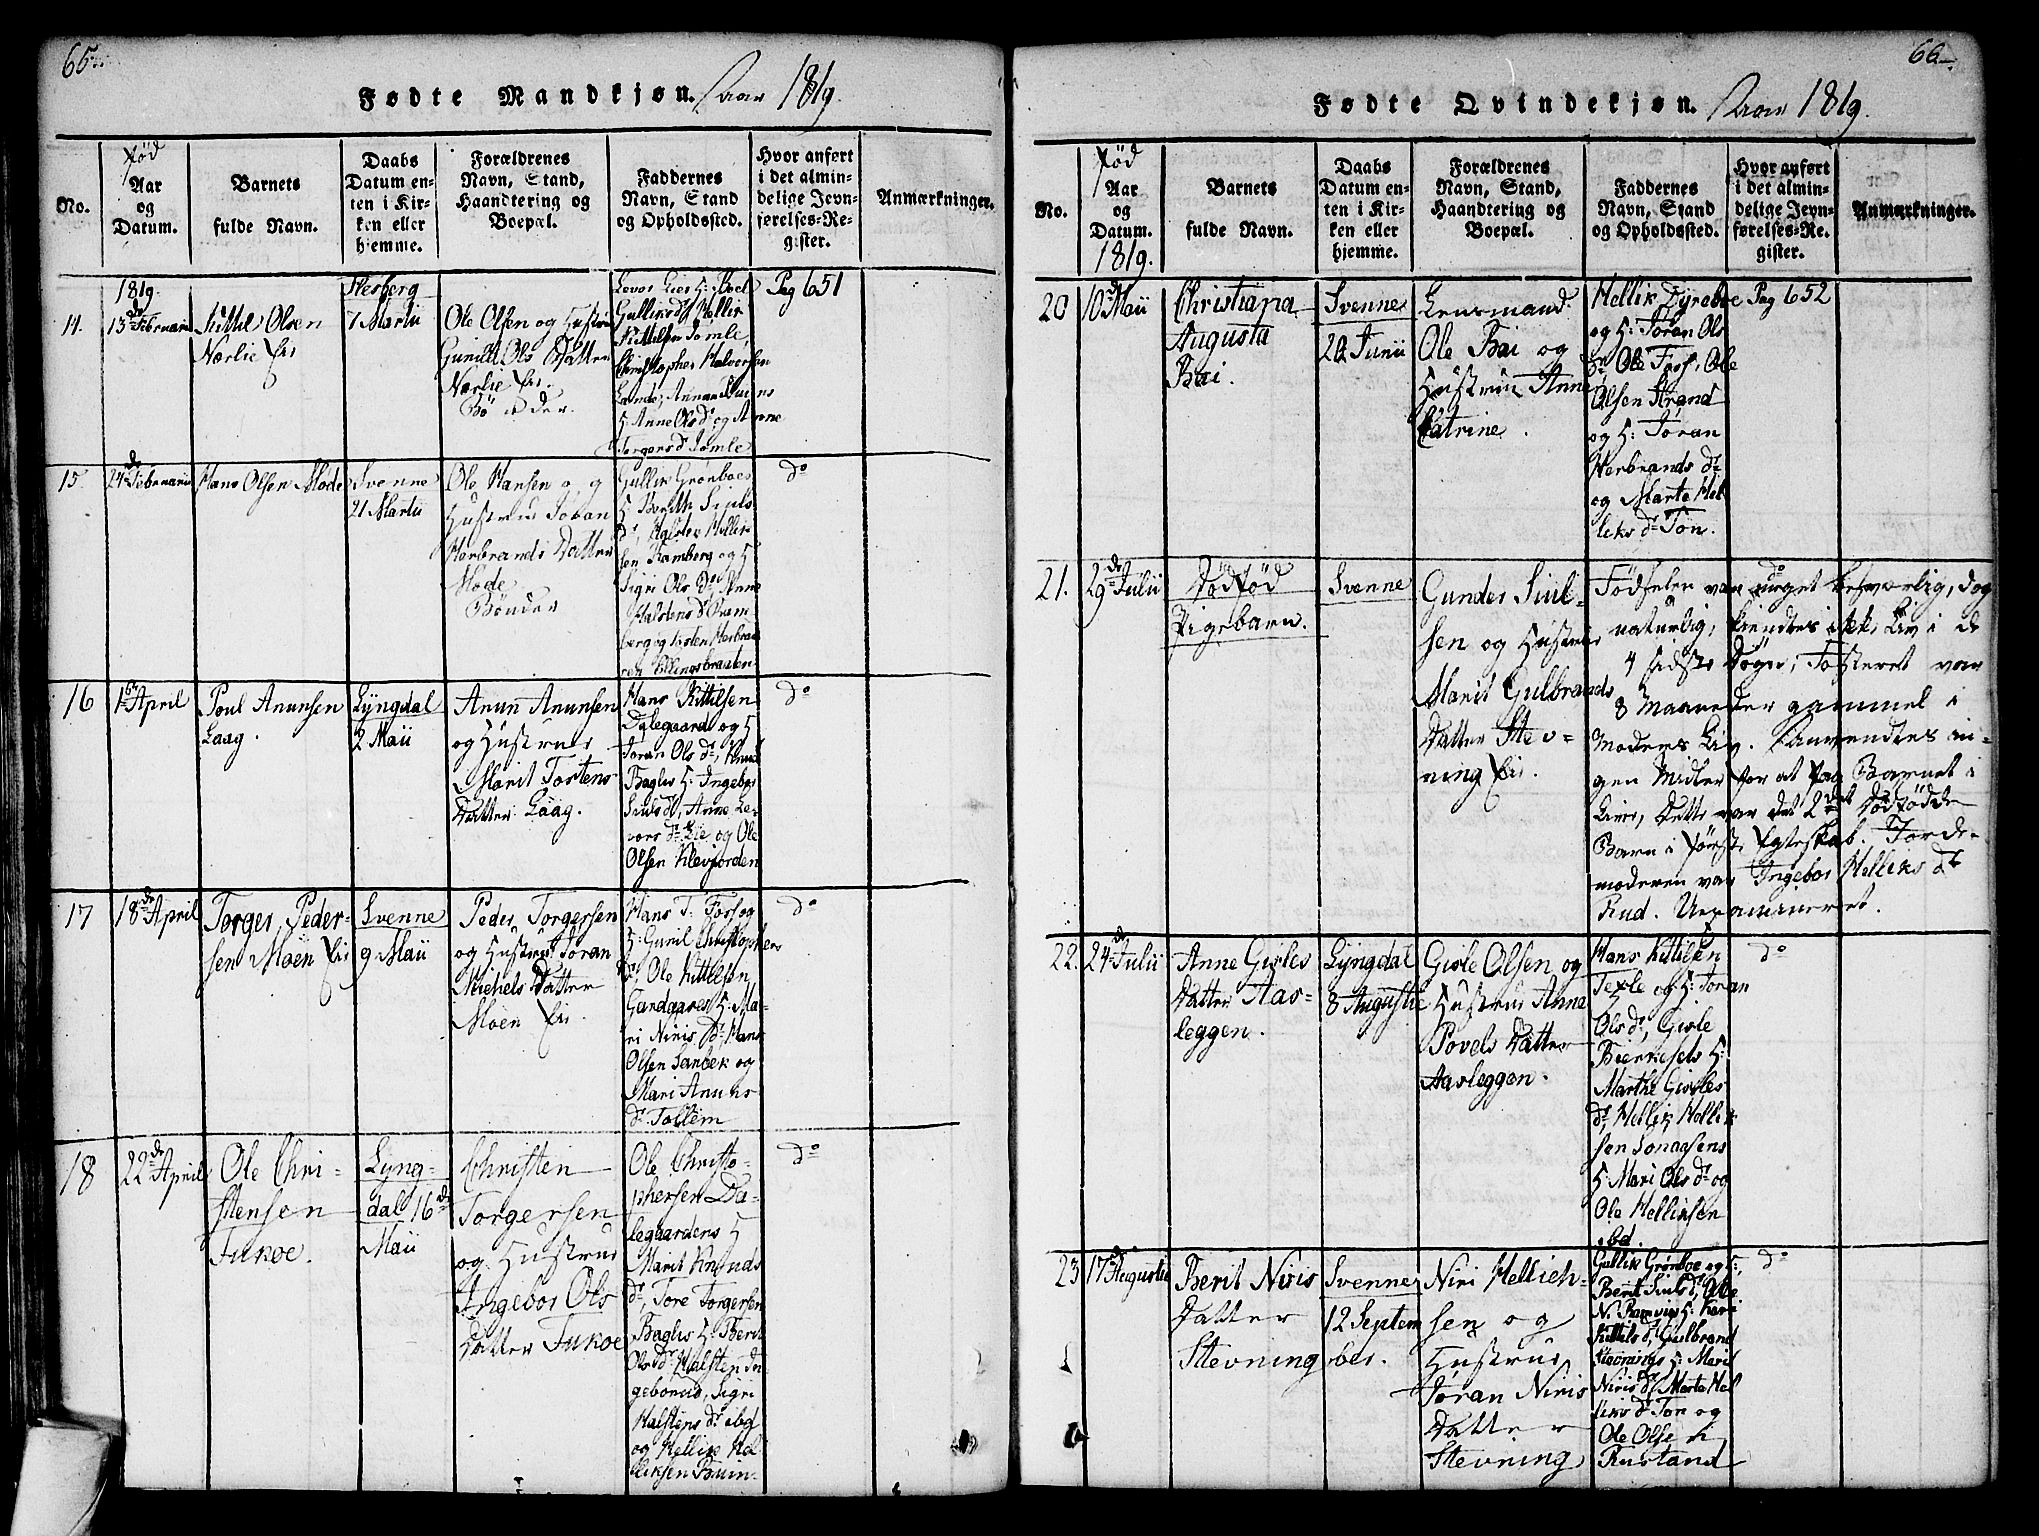 65.
Fødte Mandkjøn. Aar 1819.
No.
Fød Aar og Datum.
Barnets fulde Navn.
Daabs Datum enten i Kirken eller hjemme.
Forældrenes Navn, Stand, Haandtering og Boepæl.
Faddernes Navn, Stand og Opholdssted.
Hvor anført i det almindelige Jevnførelses-Register.
Anmærkninger.
14.
1819.
13de Februarii
Kittil Olsen
Nørlie
Flesberg
7 Martii
Ole Olsen og Hustrue
Gunild Ols Datter
Nørlie
Bønder.
Gulliksdr Hellik
Kittilsen Jømle,
Christopher Halvorsen
Lande,
H: Anne Olsdr og Anne
Torgersdr Jømle
Pag 651
15
24de Februarii
Hans Olsen Møde
Svenne
21 Martii
Ole Hansen og
Hustrue Joran
Herbrands Datter
Møde
Bønder
Gullik Grønboes
H: Berith Siuls
dr, Halsten Hellik-
sen Ramberg og H:
Sigri Ols dr Anne
Halstens dr Ram
berg og Kolsten Herbrand
sen Killingsbraaten
do
16
1ste April
Poul Anunsen
Laag.
Lyngdal
2 Maii
Anun Anunsen
og Hustrue
Marit Tostens
Datter Laag.
Hans Kittilsen
Dalegaard og H
Joran Ols dr, Knud
Baglis H: Ingebor
Siuls dr, Anne Le-
vors dr Lie og Ole
Olsen Klevjorden
do
17
18de April
Torger Peder-
sen Moen
Svenne
9 Maii
Peder Torgersen
og Hustrue Joran
Michels Datter
Moen
Hans T: Fors og
H: Guril Christophers
dr, Ole Kittilsen
Gaadgaares H: Ma-
ri Niris dr, Hans
Olsen Sandek og
Mari Anuns
dr Tollem
do
18
22de April
Ole Chri-
stensen
Jukoe.
Lyng-
dal 16de
Maii
Christen
Torgersen
og Hustrue
Ingebor Ols
Datter Jukoe
Ole Christo-
phersen Da-
legaardens H
Marit Knuds
dr, Tore Torgersen
Baglis H: Berit
Olsdr Halsten In
geborud, Sigri
Halstens dr ibd
og Hellik Hel
liksen Bruin-
do
66
Fødte Qvindekjøn. Aar 1819.
No.
Fød Aar og Datum. 1819.
Barnets fulde Navn.
Daabs Datum enten i Kirken eller hjemme.
Forældrenes Navn, Stand, Haandtering og Boepæl.
Faddernes Navn, Stand og Opholdssted.
Hvor anført i det almindelige Jevnførelses-Register.
Anmærkninger.
20
10de Maii
Christiana
Augusta
Bai.
Svenne
20 Junii
Lensmand
Ole Bai og
Hustrue Anne
Catrine.
Hellik Dyreboe
og H: Joran Ols
dr Ole Fors, Ole
Olsen Strand
og H: Joran
Herbrands dr
og Marte Hel
leks dr Ton.
Pag 652
21.
29de Julii
Dødfød
Pigebarn.
Svenne
Gunder Siul-
sen og Hustrue
Marit Gulbrands
Datter Stev-
ning
Fødselen var noget besværlig, dog
naturlig, kiendtes ikke Liv i de
4 sidste Døgn, Fosteret var
8 Maaneder gammel i
Moders Liv. Anvendtes in-
gen Midler for at faa Barnet i
Live, Dette var det 2det Dødfødde
Barn i første Egteskab. Jorde-
moderen var Ingebor Helliks dr
Rud. Uexamineret.
do
22.
24de Julii
Anne Gisles
Datter Aas-
leggen.
Lyngdal
8 Augustii
Gisle Olsen og
Hustrue Anne
Povels Datter
Aasleggen.
Hans Kittilsen
Texle og H: Joran
Ols dr, Gisle
Bierkesets H:
Marthe Gisles
dr, Hellik Hellik
sen Sonaasens
H: Mari Ols dr og
Ole Helliksen
ibd.
do
23
17de Augustii
Berit Niris
Datter
Stevning
Svenne
12 Septem
ber.
Niri Hellich-
sen og
Hustrue
Joran Niris
Datter
Stevning
Gullik Grønboe og H:,
Berit Siuls dr, Ole
N. Ramvig H: Kari
Kittils dr, Gulbrand
Stevnings H: Marit
Niris dr Marte Hel
leks dr Ton og
Ole Olsen
Rustand
do